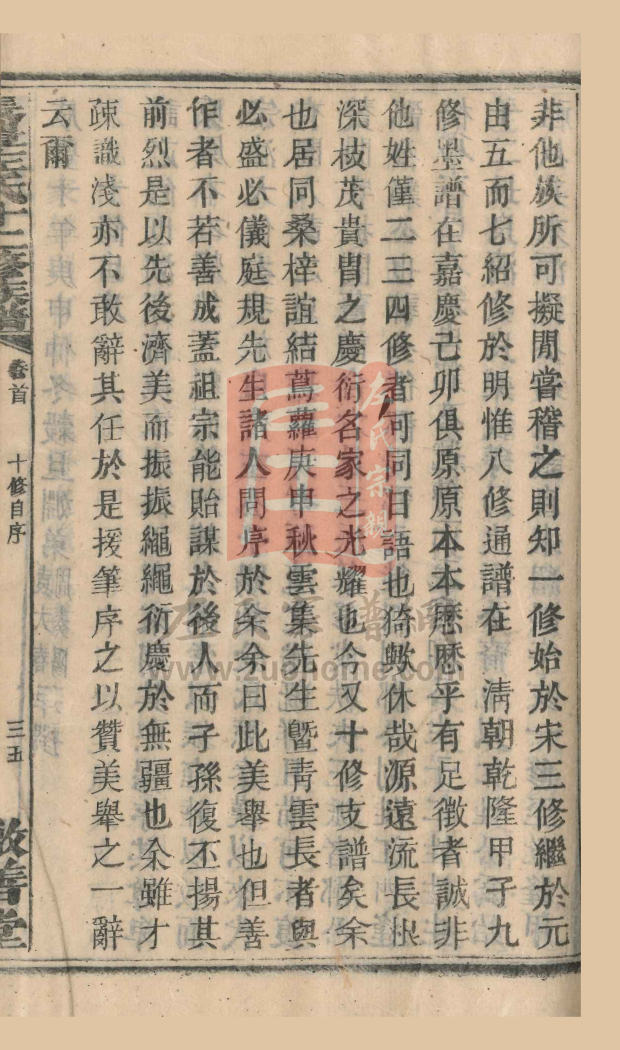 非他族所可擬閒嘗稽之則知一修始於宋三修繼於元
由五而七紹修於明惟八修通譜在 淸朝乾隆甲子九
修墨譜在嘉慶己卯俱原原本本歷歷乎有足徵者誠非
他姓僅二三四修者可同日語也猗歟休哉源遠流長根
深枝茂貴胄之慶衍名家之光耀也今又十修支譜矣余
也居同桑梓誼結蔦蘿庚申秋雲集先生曁青雲長者與
必盛必儀庭規先生諸人問序於余余曰此美舉也但善
作者不若善成蓋祖宗能貽謀於後人而子孫復丕揚其
前烈是以先後濟美而振振繩繩衍慶於無疆也余雖才
疎識淺亦不敢辭其任於是援筆序之以贊美舉之一辭
云爾
左氏十二修族譜
卷首
十修自序
三五
敦善堂
左氏宗親
www.zuohome.com